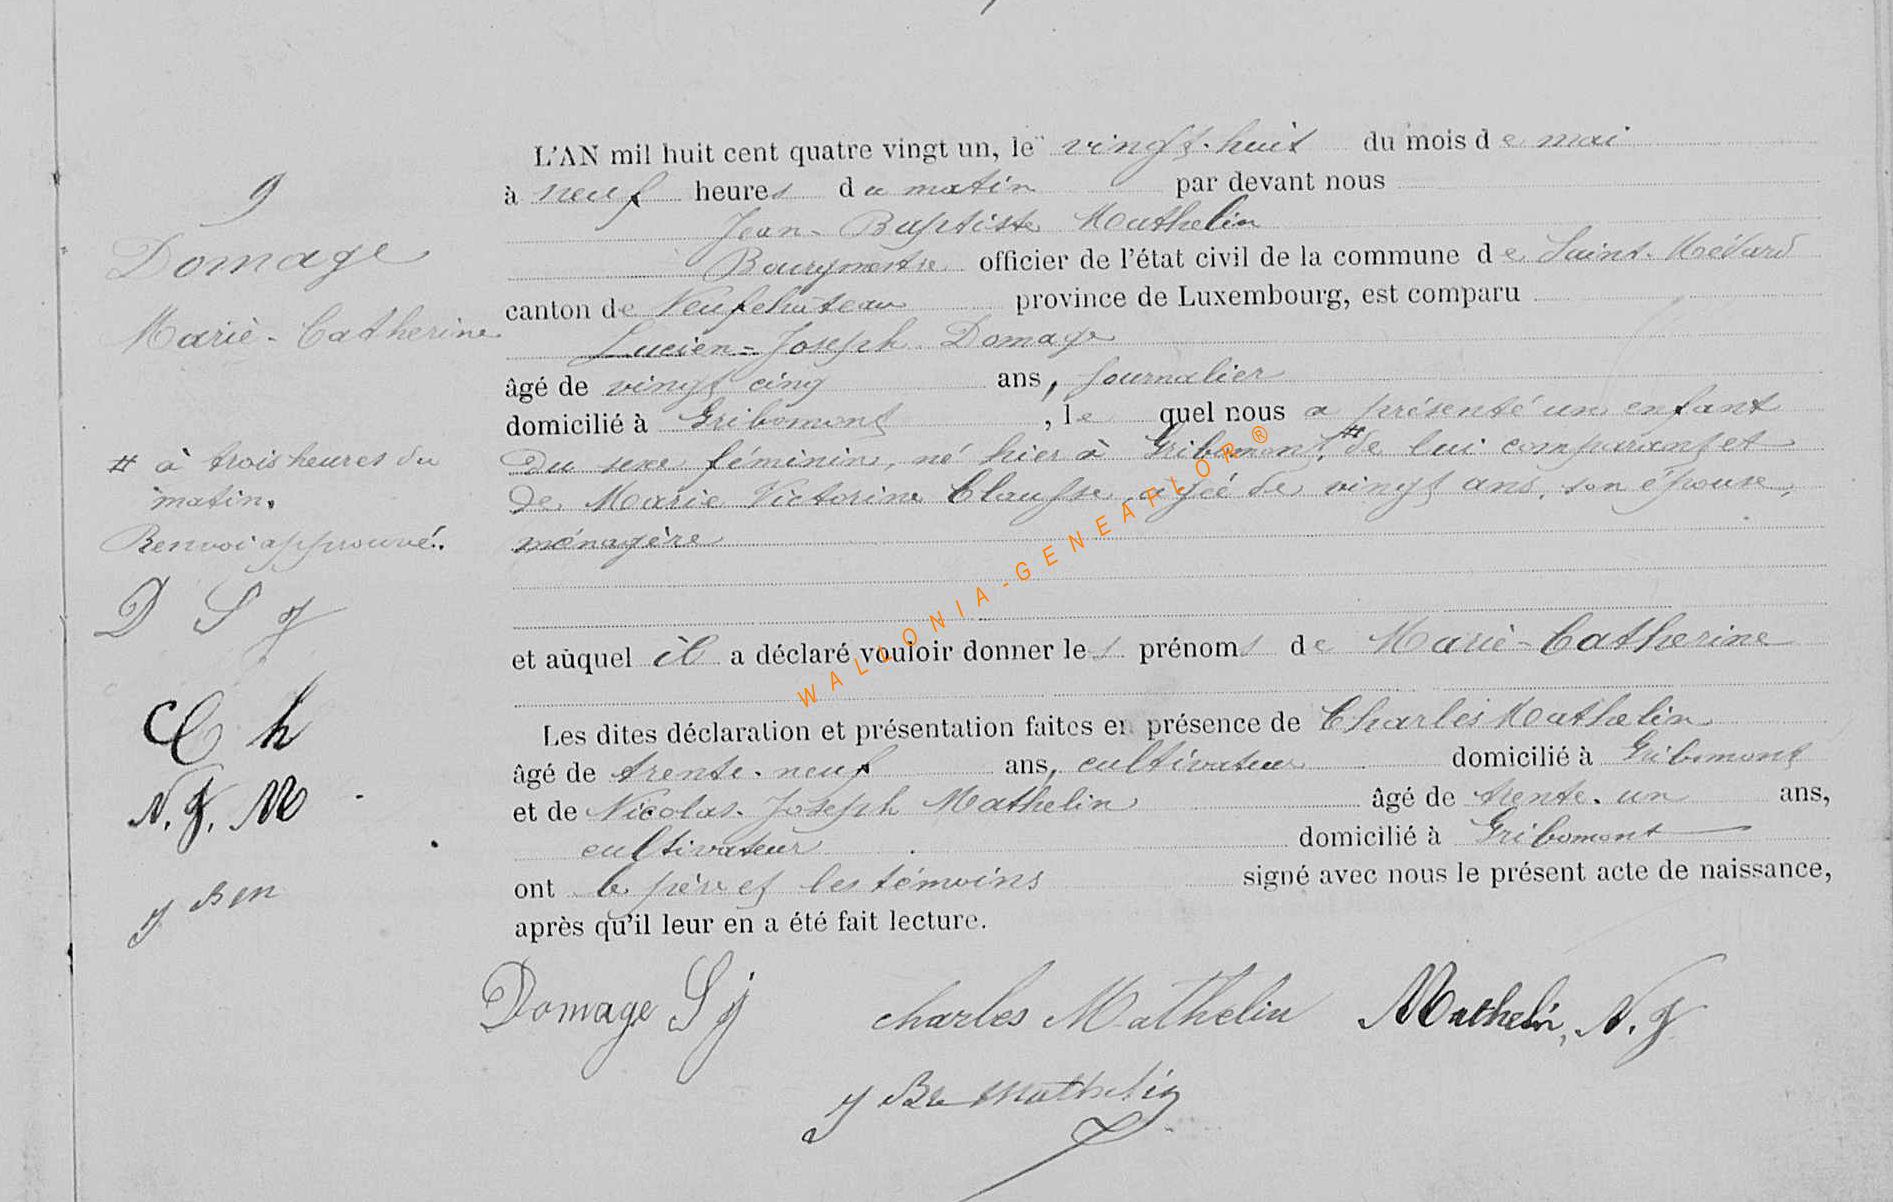 9
Domage
Marie-Catherine
# à trois heures du
matin.
Renvoi approuvé.
D S J
C h
N. J. M
J B M
L'AN mil huit cent quatre vingt un, le vingt-huit du mois de mai
à neuf heures du matin par devant nous
Jean-Baptiste Mathelin
Bourgmestre officier de l'état civil de la commune de Saint-Médard
canton de Neufchâteau province de Luxembourg, est comparu
Lucien-Joseph Domage
âgé de vingt cinq ans, journalier
domicilié à Gribomont, lequel nous a présenté un enfant
du sexe féminin, né hier à Gribomont, # de lui comparant et
de Marie Victorine Clausse, agée de vingt ans, son épouse,
ménagère
et auquel il a déclaré vouloir donner les prénoms de Marie-Catherine
Les dites déclaration et présentation faites en présence de Charles Mathelin
âgé de trente-neuf ans, cultivateur domicilié à Gribomont
et de Nicolas-Joseph Mathelin âgé de trente-un ans,
cultivateur domicilié à Gribomont
ont le père et les témoins signé avec nous le présent acte de naissance,
après qu'il leur en a été fait lecture.
Domage S j Charles Mathelin Mathelin, N. J
J Bte Mathelin
WALLONIA-GENEAFLOR®